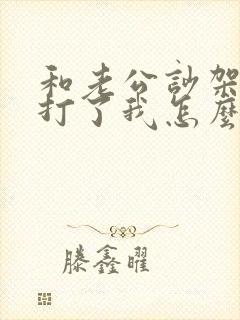 和老公訃架
打了我怎麼
滕鑫曜